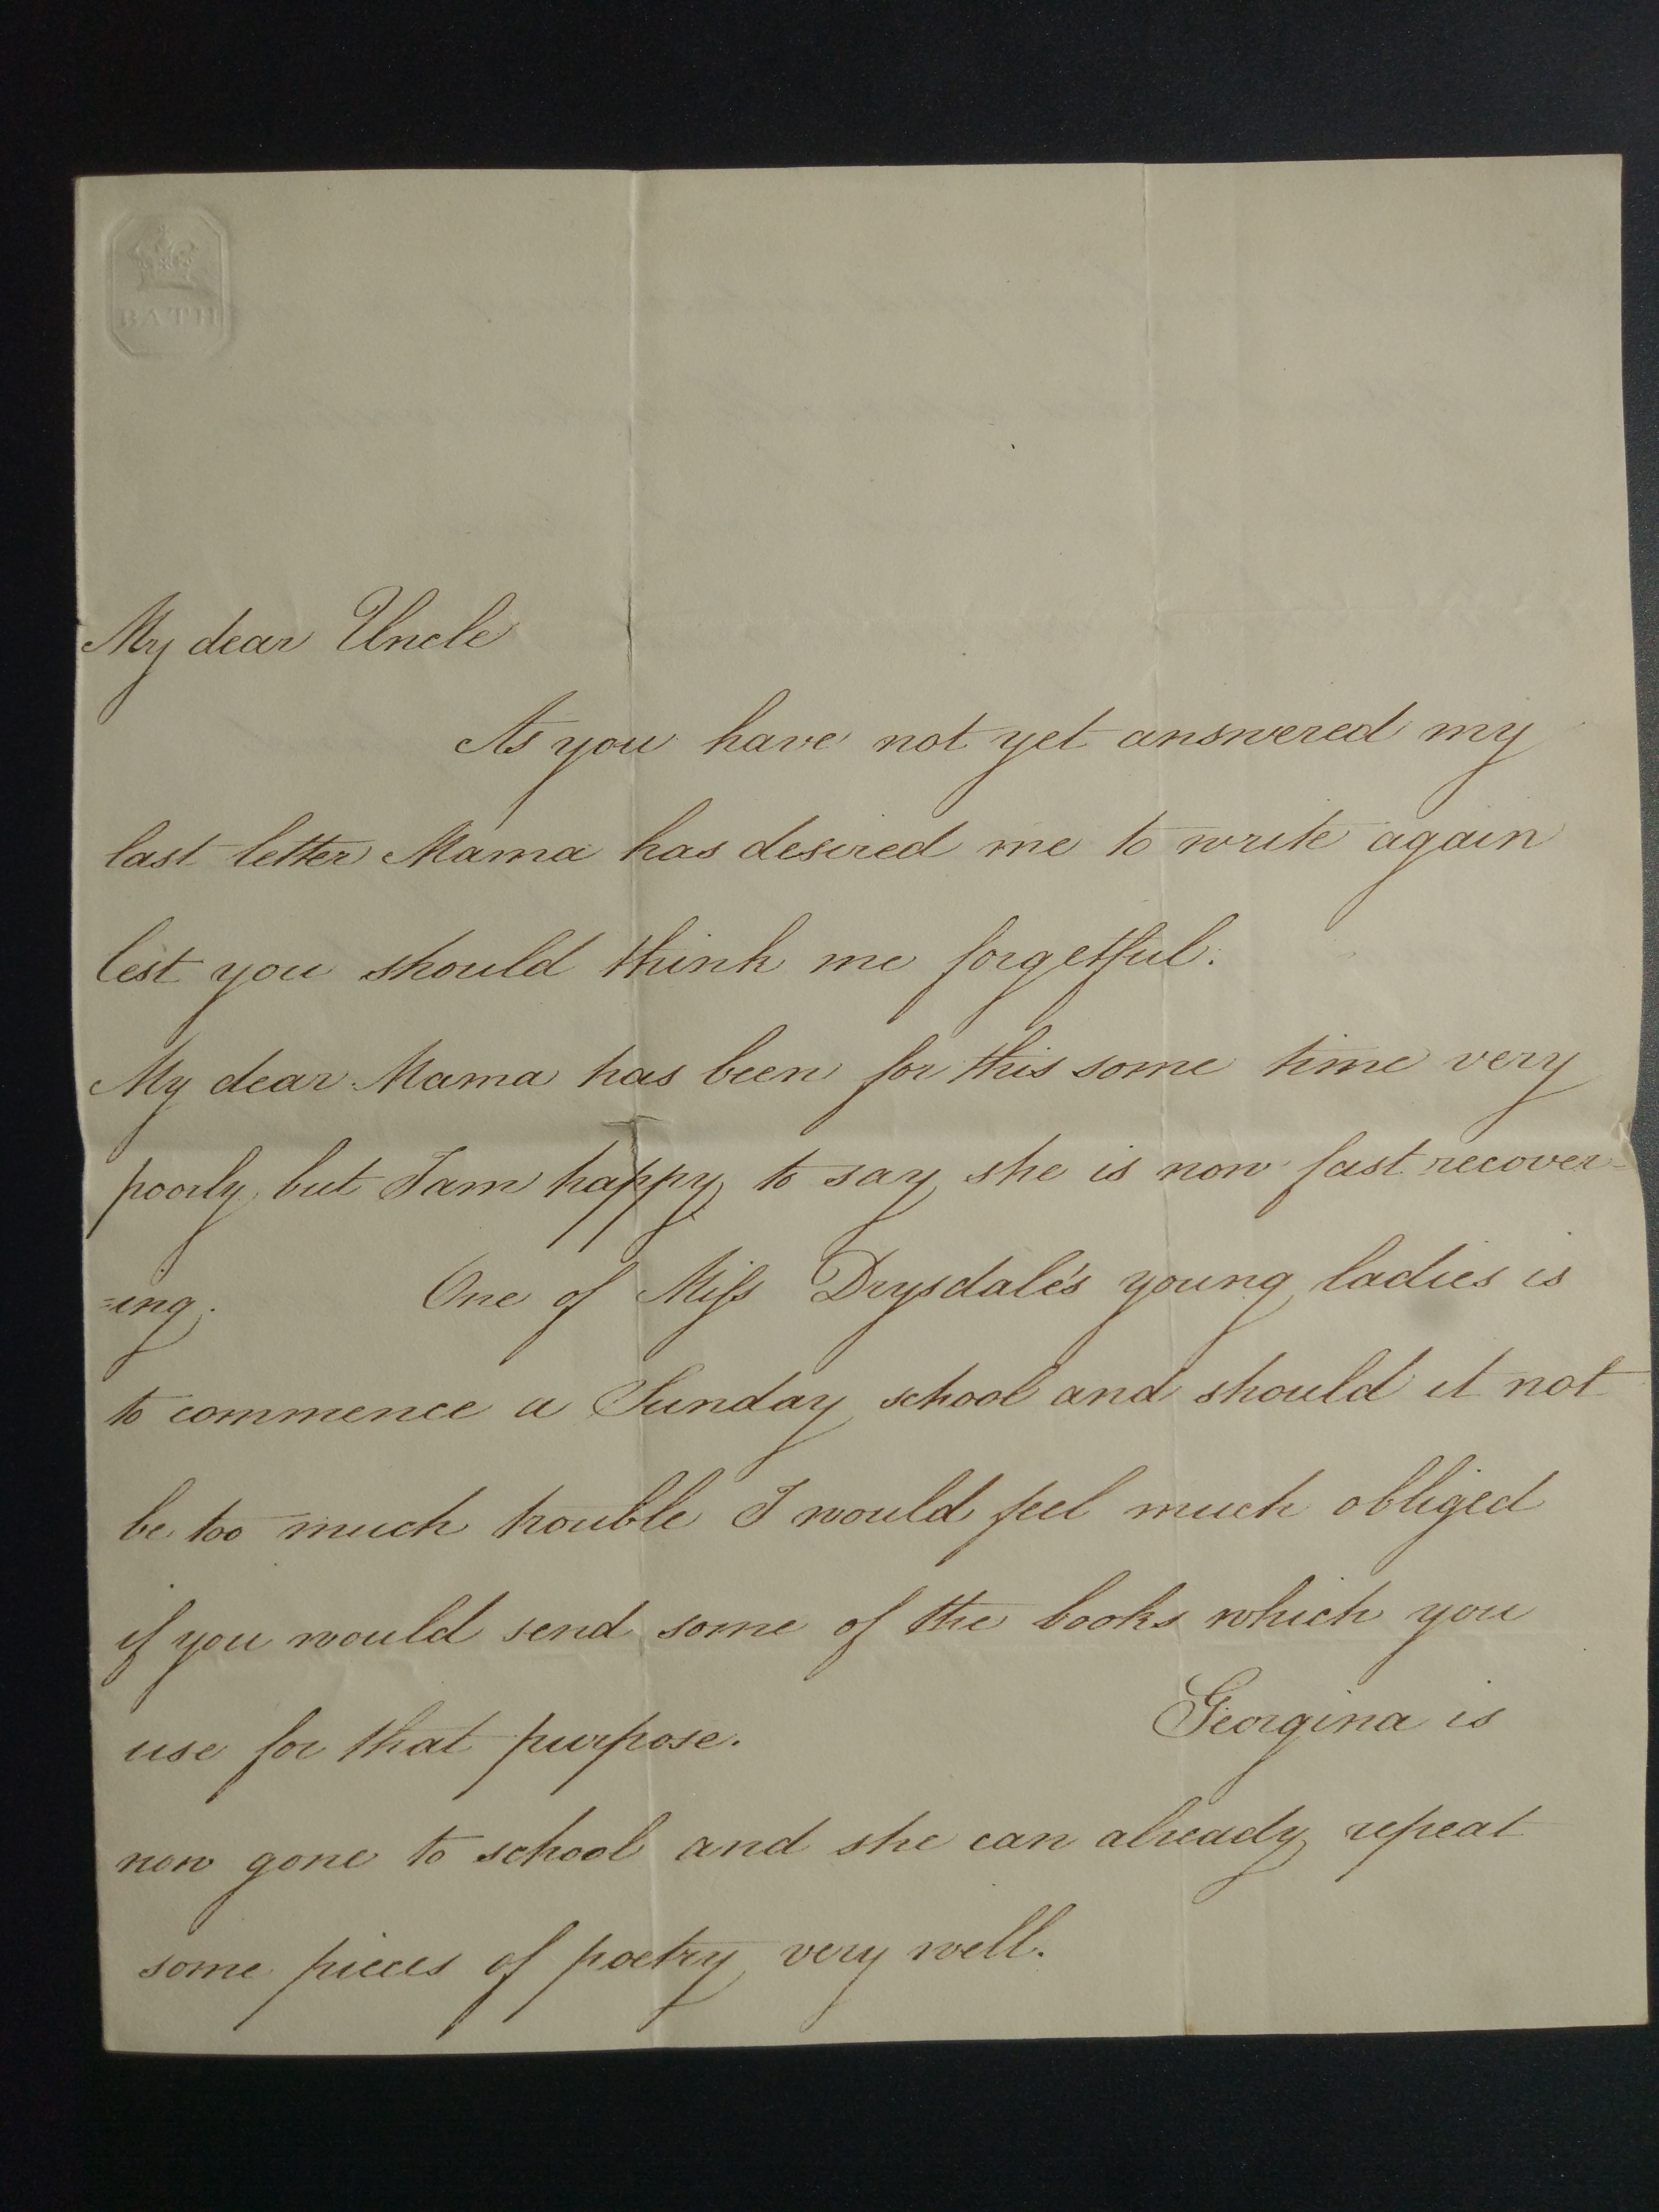 BATH
My dear Uncle
As you have not yet answered my
last letter Mama has desired me to write again
lest you should think me forgetful.
My dear Mama has been for this some time very
poorly but I am happy to say she is now fast recover=
=ing. One of Miſs Drysdale's young ladies is
to commence a Sunday school and should it not
be too much trouble I would feel much obliged
if you would send some of the books which you
use for that purpose. Georgina is
now gone to school and she can already repeat
some pieces of poetry very well.